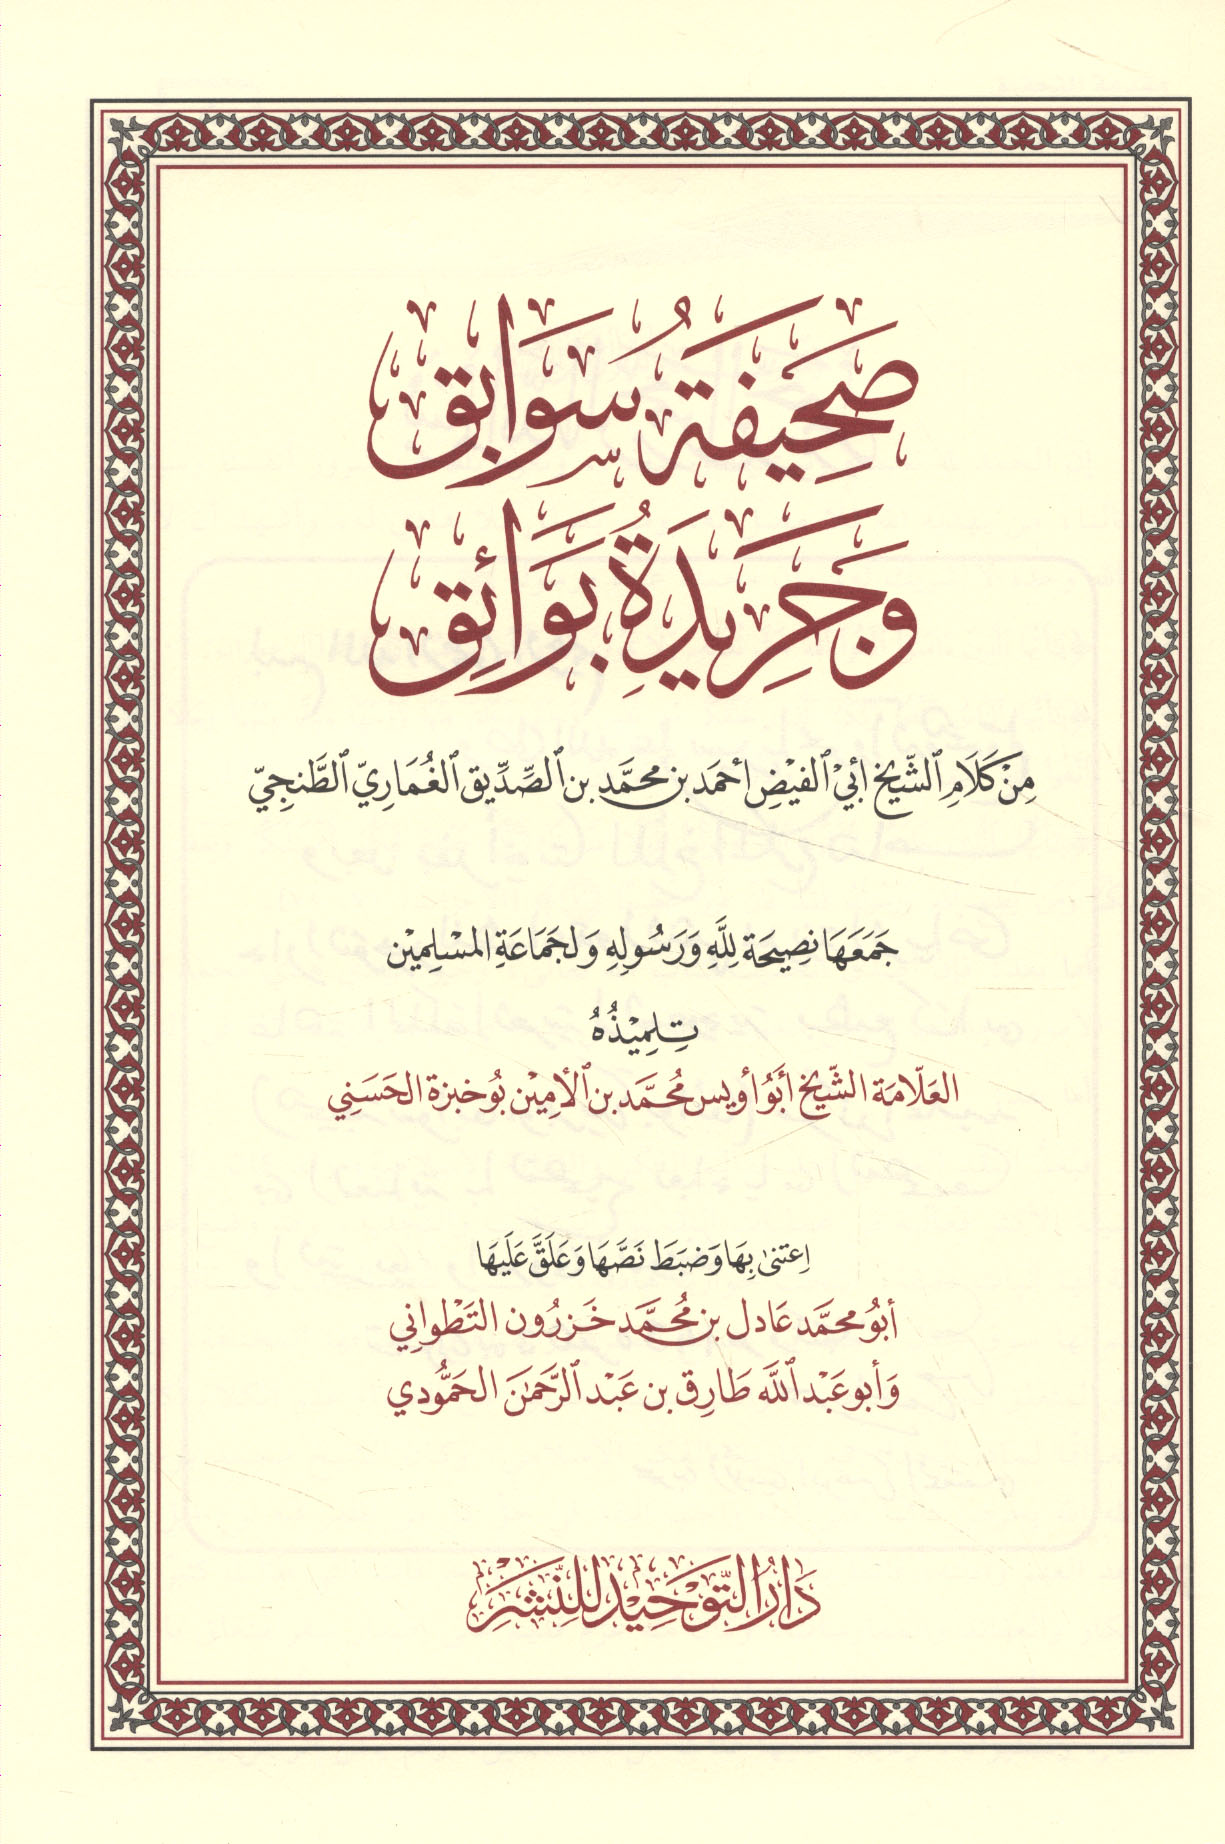 صَحِيفَةُ سَوَابِق
وَجَرِيدَةُ بَوَائِق
مِنْ كَلَامِ الشَّيْخِ أَبِي الْفَيْضِ أَحْمَد بن مُحَمَّدِ بن الصِّدِّيقِ الْغُمَارِيِّ الطَّنجِيِّ
جَمَعَهَا نصِيحَة لِلَّهِ وَرَسُولِهِ وَلجَمَاعَةِ المسْلِمِيْن
تِلمِيْذُهُ
العَلّامَة الشّيْخ أَبُو أُويس مُحَمَّد بن الأَمِيْن بُوخبزة الحَسَنِي
اِعتنىٰ بِهَا وَضبَطَ نَصَّهَا وَعَلَقَّ عَلَيهَا
أبُو محمَّد عَادل بن مُحَمَّد خَزرُون التَطْواني
وَأبو عَبْد اللَّه طَارِق بن عَبْد الرَّحمٰن الحَمُّودي
دَارُ التَّوْحِيْد لِلنَّشْرِ